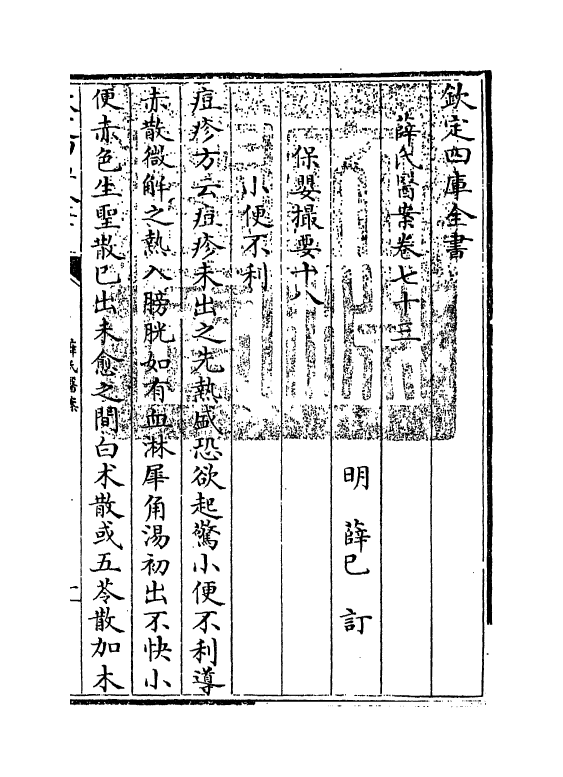 欽定四庫全書
薛氏醫案卷七十三
明 薛已 訂
保嬰撮要十八
小便不利
痘疹方云痘疹未出之先熱盛恐欲起驚小便不利導
赤散微解之熱入膀胱如有血淋犀角湯初出不快小
便赤色生聖散已出未愈之間白术散或五苓散加木
薛氏醫案
一